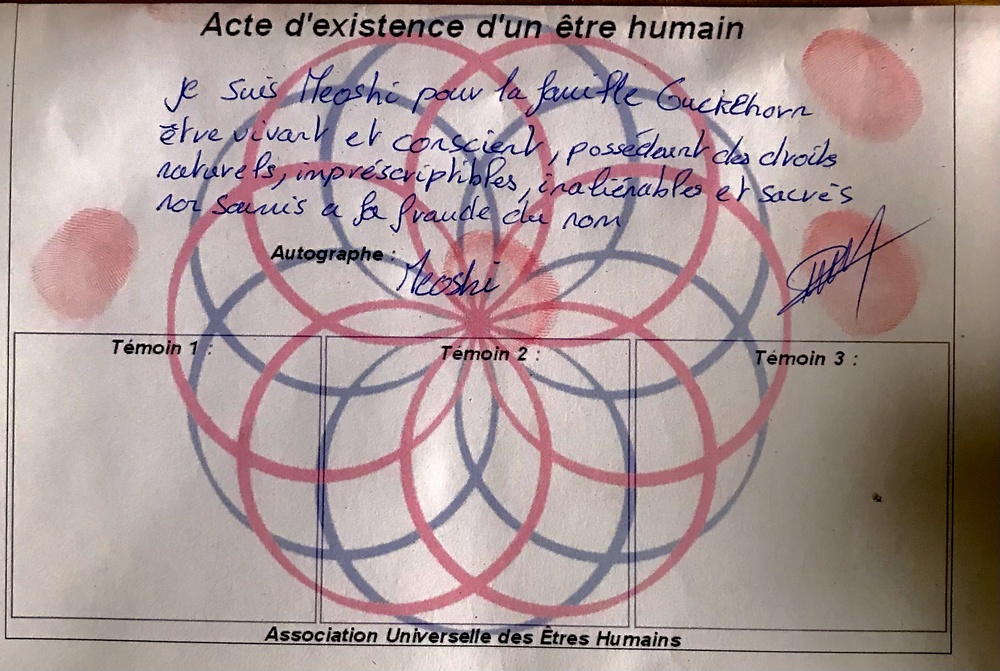 Acte d'existence d'un être humain
Je suis Meoshi pour la famille Guckelhorn
être vivant et conscient, possédant des droits
naturels, impréscriptibles, inaliénables et sacrés
non soumis a la fraude du nom
Autographe : Meoshi
Témoin 1 : Témoin 2 : Témoin 3 :
Association Universelle des Êtres Humains